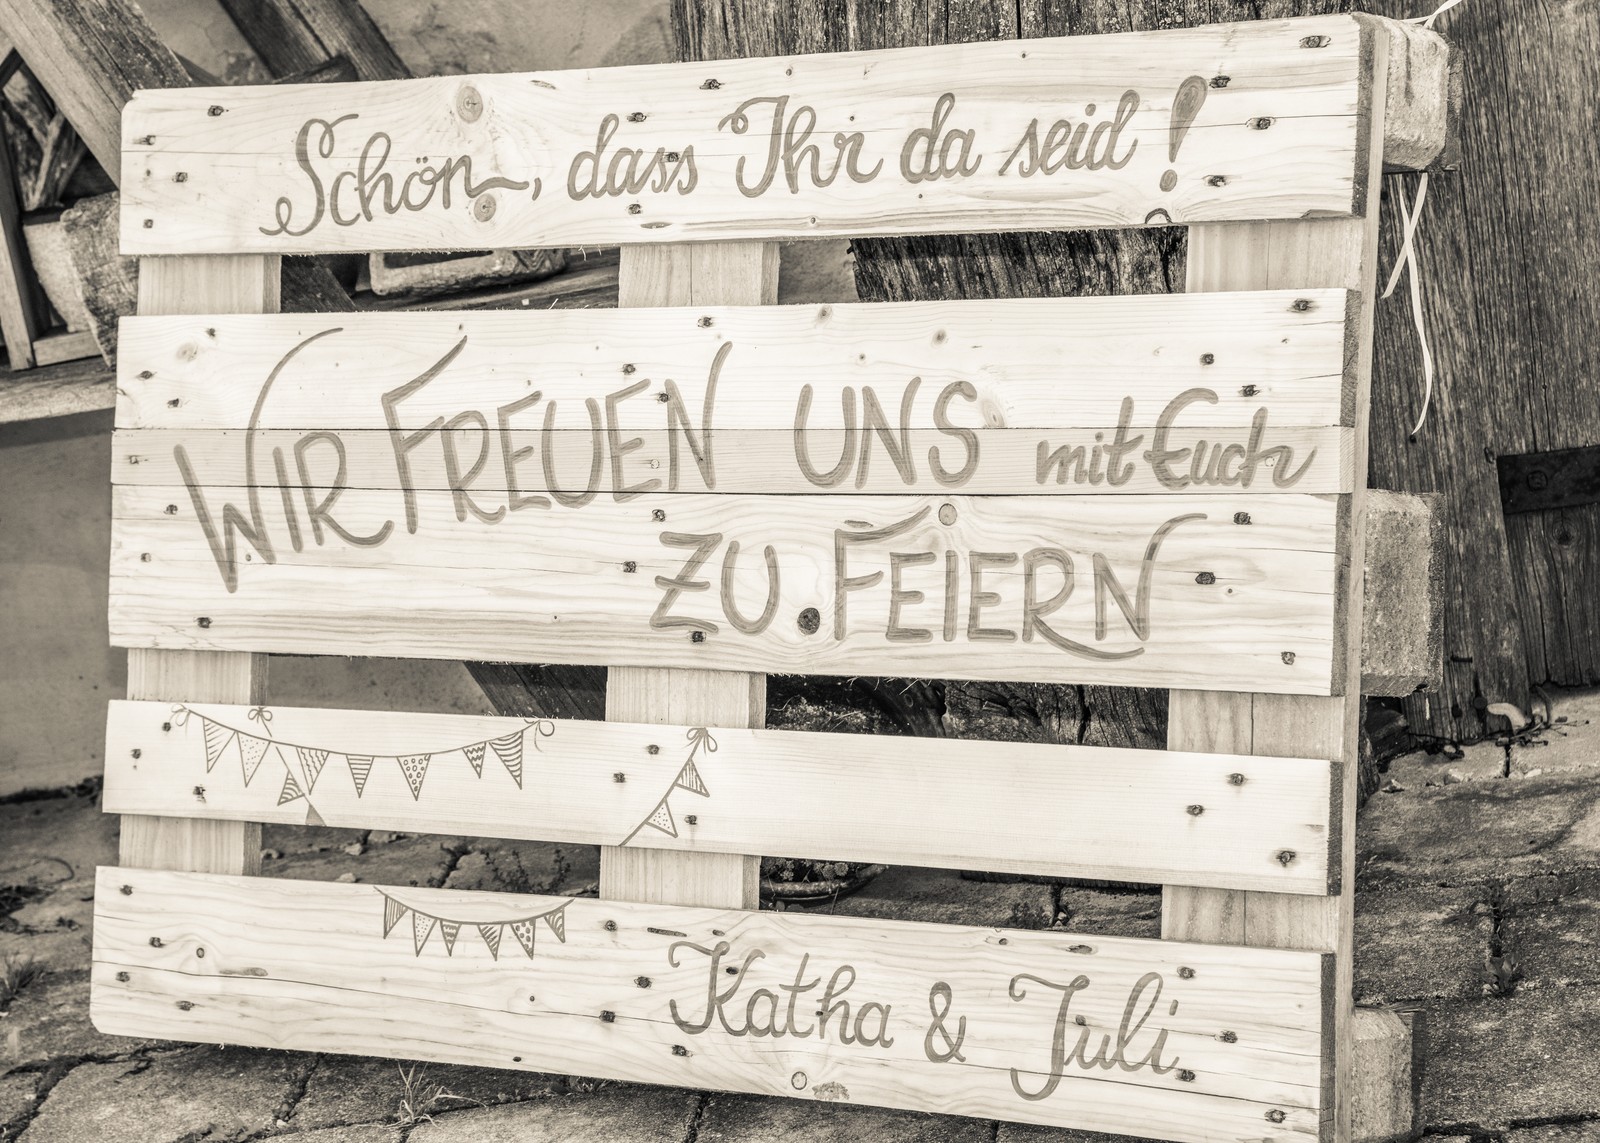 Schön, dass Ihr da seid!
WIR FREUEN UNS mit Euch
ZU FEIERN
Katha & Juli